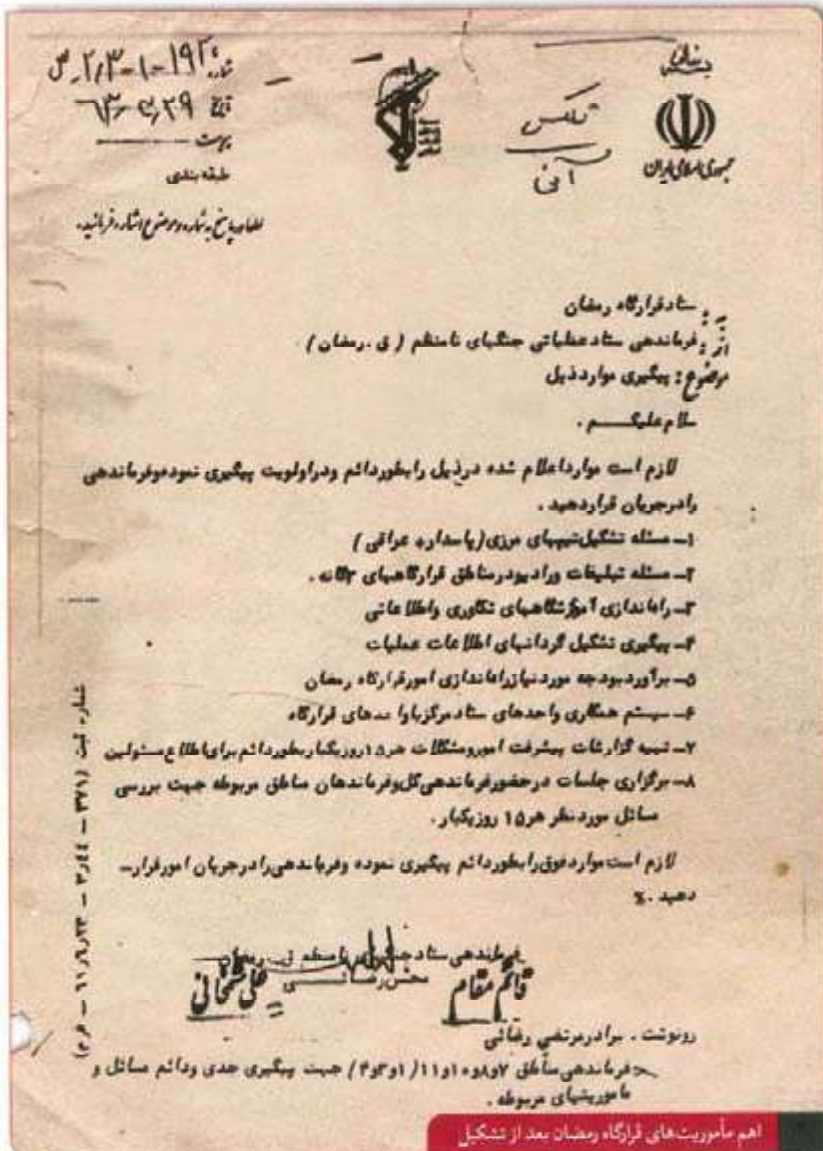 بسمه تعالی
جمهوری اسلامی ایران
تلکس
آنی
شماره ۱۹۲-۱-۲/۳
تاریخ ۶۳/۴/۲۹
پیوست
طبقه‌بندی
لطفا در پاسخ به شماره و موضوع اشاره فرمائید.
به: ستاد قرارگاه رمضان
از: فرماندهی ستاد عملیاتی جنگهای نامنظم ( ق . رمضان )
موضوع: پیگیری موارد ذیل
سلام علیکم .
لازم است موارد اعلام شده در ذیل را بطور دائم و در اولویت پیگیری نموده و فرماندهی
را در جریان قرار دهید .
۱- مسئله تشکیل تیپهای مرزی (پاسدار + عراقی )
۲- مسئله تبلیغات و رادیو در مناطق قرارگاههای ۳گانه .
۳- راه اندازی آموزشگاههای تکاوری و اطلاعاتی
۴- پیگیری تشکیل گردانهای اطلاعات عملیات
۵- برآورد بودجه مورد نیاز راه اندازی امور قرارگاه رمضان
۶- سیستم همکاری واحدهای ستاد مرکز با واحدهای قرارگاه
۷- تهیه گزارشات پیشرفت امور و مشکلات هر ۱۵ روز یکبار بطور دائم برای اطلاع مسئولین
۸- برگزاری جلسات در حضور فرماندهی کل و فرماندهان مناطق مربوطه جهت بررسی
مسائل مورد نظر هر ۱۵ روز یکبار .
لازم است موارد فوق را بطور دائم پیگیری نموده و فرماندهی را در جریان امور قرار-
دهید .%
فرماندهی ستاد جنگهای نامنظم ق . رمضان
محسن رضائی
قائم مقام
علی شمخانی
رونوشت . برادر مرتضی رضائی
فرماندهی مناطق ۷و۸و۱۰و۱۱ (۱و۳و۴) جهت پیگیری جدی و دائم مسائل و
ماموریتهای مربوطه .
شماره ثبت (۳۷۱ - ۳/۴۴ - ۶۱/۶/۲۳ - ف م)
اهم مأموریت‌های قرارگاه رمضان بعد از تشکیل